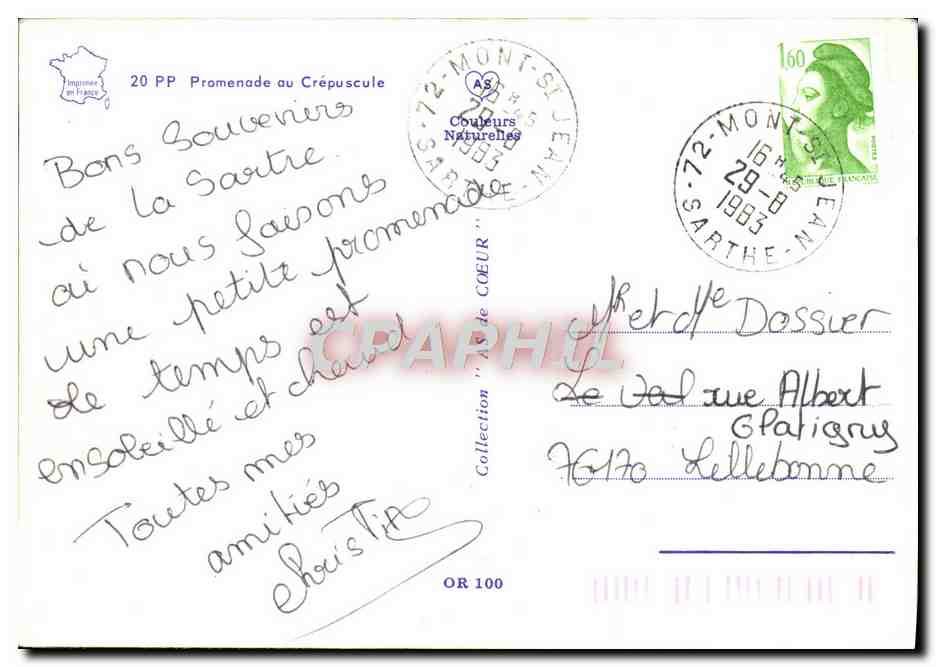 Imprimée
en France
20 PP Promenade au Crépuscule
Bons Souvenirs
de la Sartre
où nous faisons
une petite promenade
le temps est
ensoleillé et chaud
Toutes mes
amitiés
AS
Couleurs
Naturelles
72-MONT-ST JEAN-
SARTHE-
16H45
29-8
1983
Collection "AS de CŒUR"
OR 100
1,60
POSTES
REPUBLIQUE FRANÇAISE
72-MONT-ST JEAN-
SARTHE-
16H45
29-8
1983
Mr et Me Dossier
Le Val rue Albert
Glatigny
76170 Lillebonne
CPAPHIL